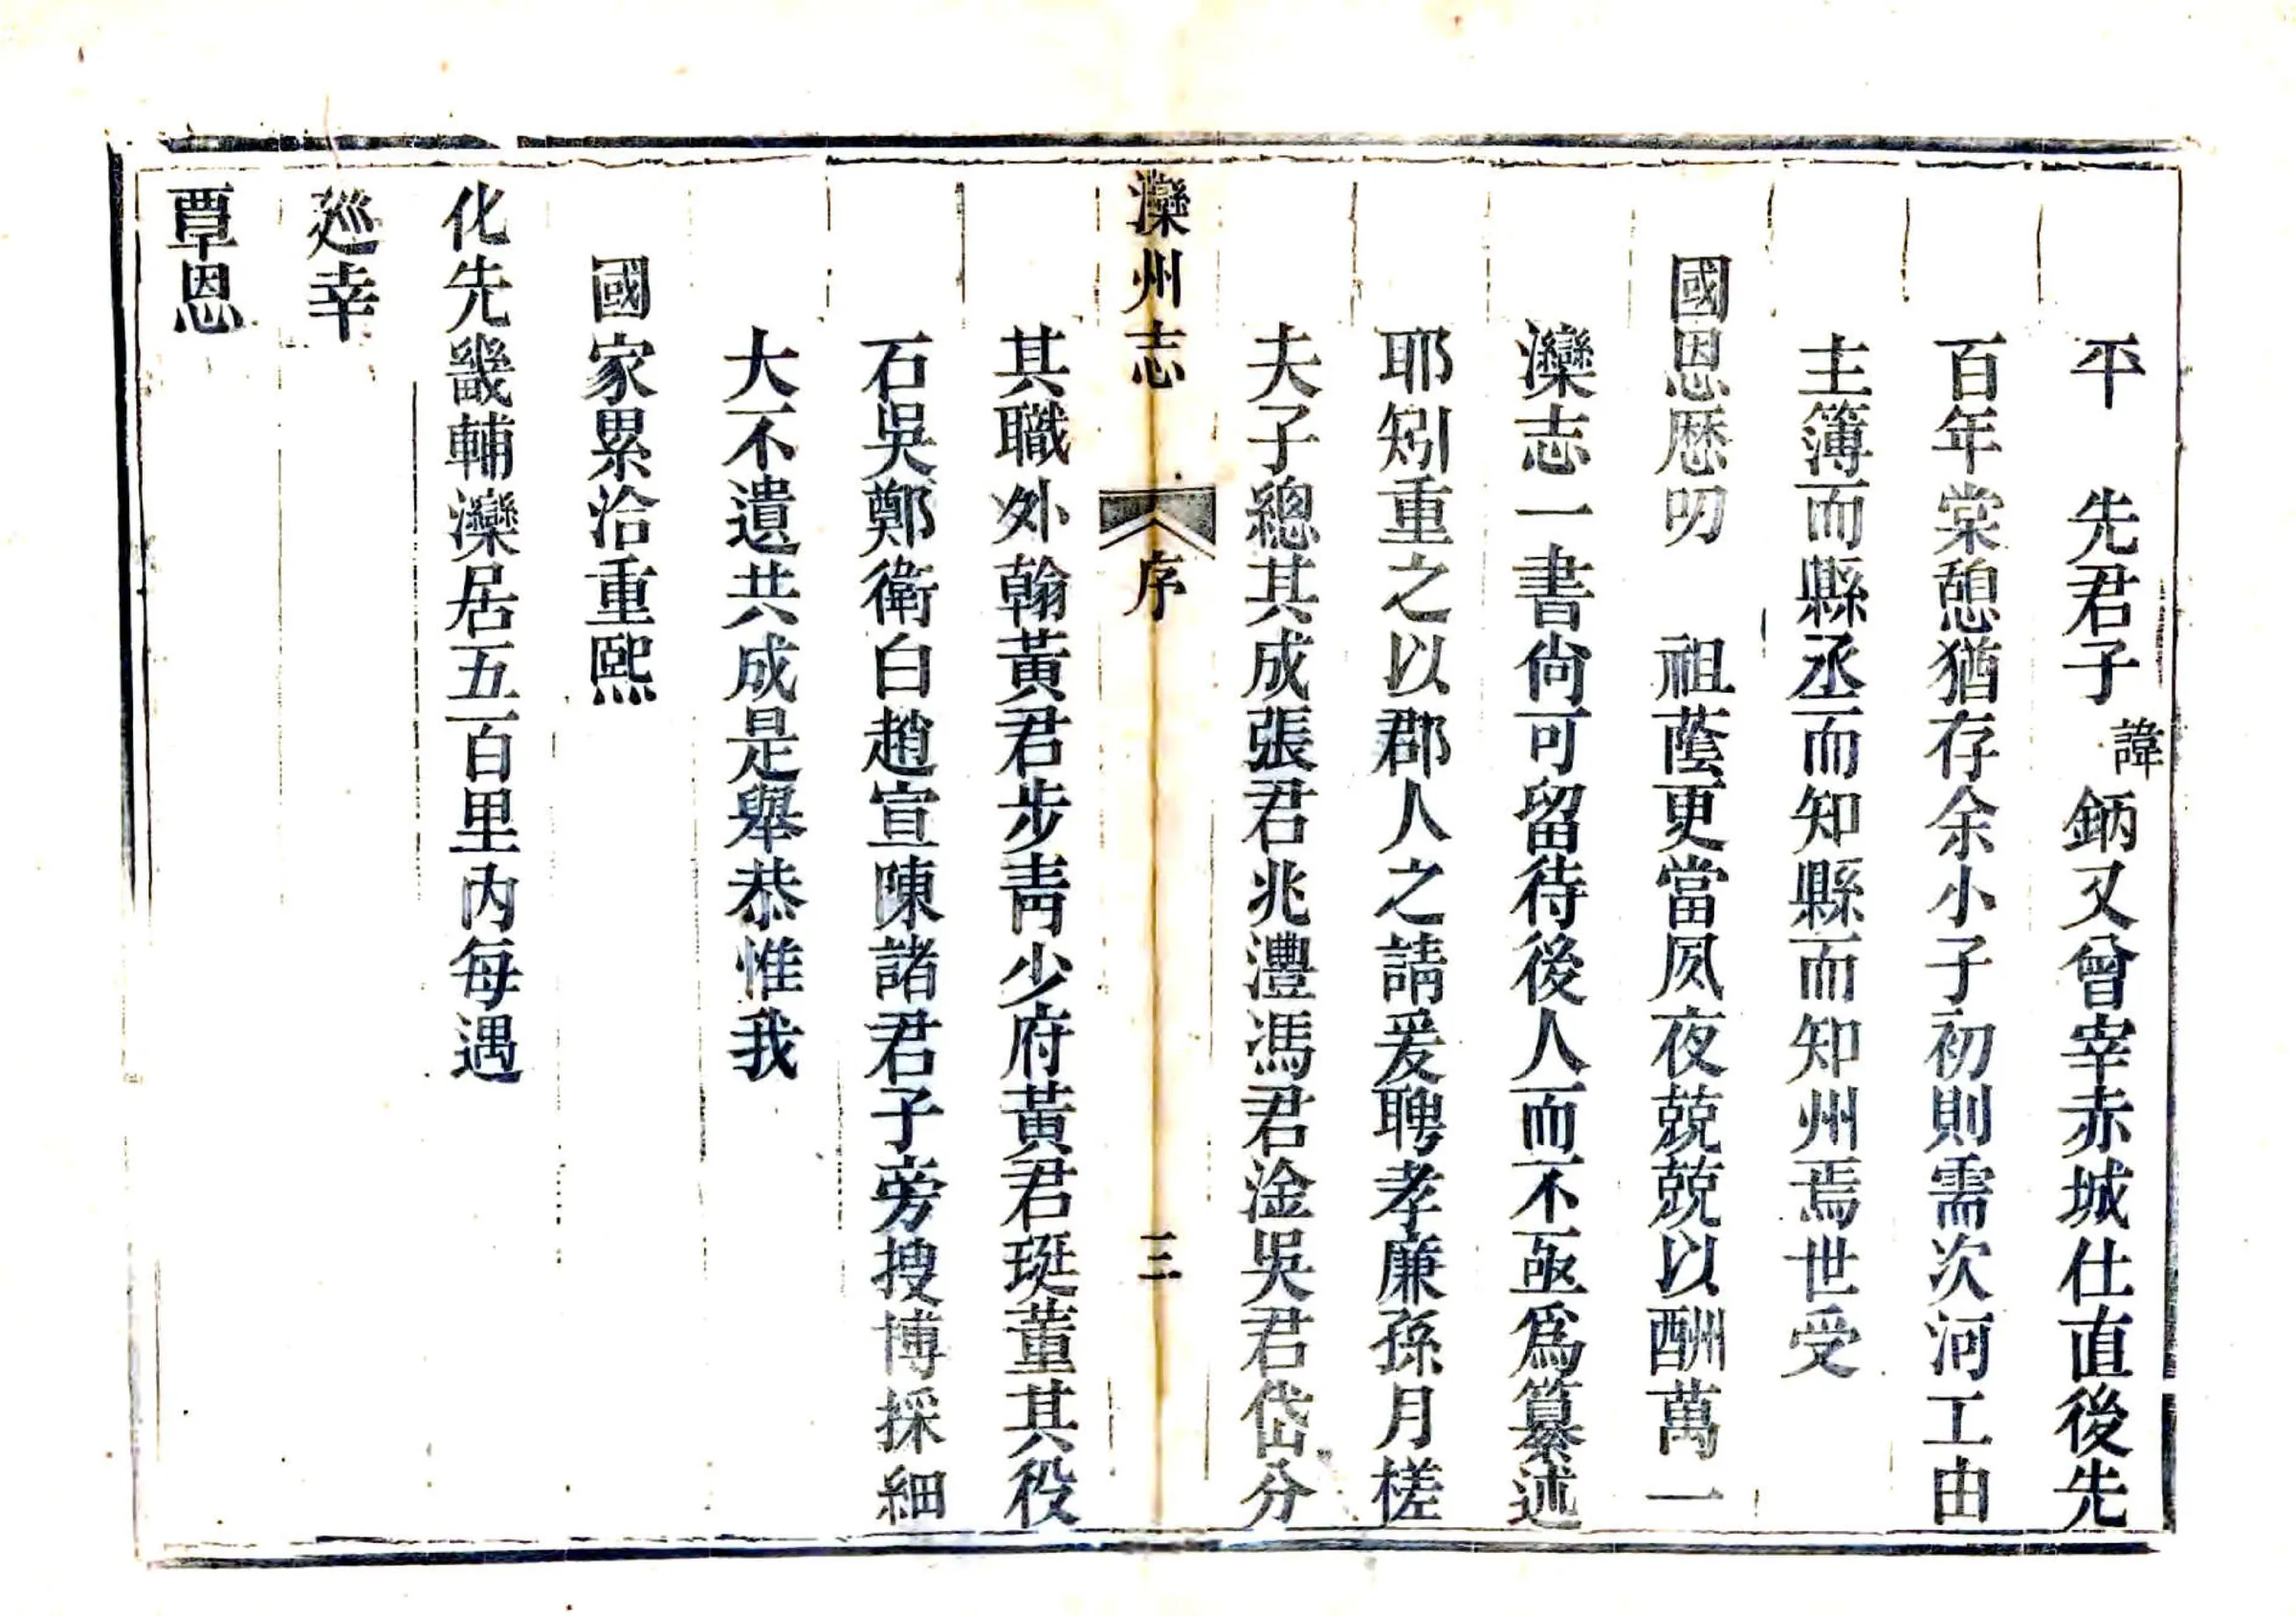 平　先君子諱鈵又曾宰赤城仕直後先
百年棠憩猶存余小子初則需次河工由
主簿而縣丞而知縣而知州焉世受
國恩歷叨　祖蔭更當夙夜兢兢以酬萬一
灤志一書尙可留待後人而不亟爲纂述
耶矧重之以郡人之請爰聘孝廉孫月槎
夫子總其成張君兆灃馮君淦吳君岱分
灤州志　序　三
其職外翰黃君步靑少府黃君珽董其役
石吳鄭衛白趙宣陳諸君子旁搜博採細
大不遺共成是舉恭惟我
國家累洽重熙
化先畿輔灤居五百里內每遇
廵幸
覃恩